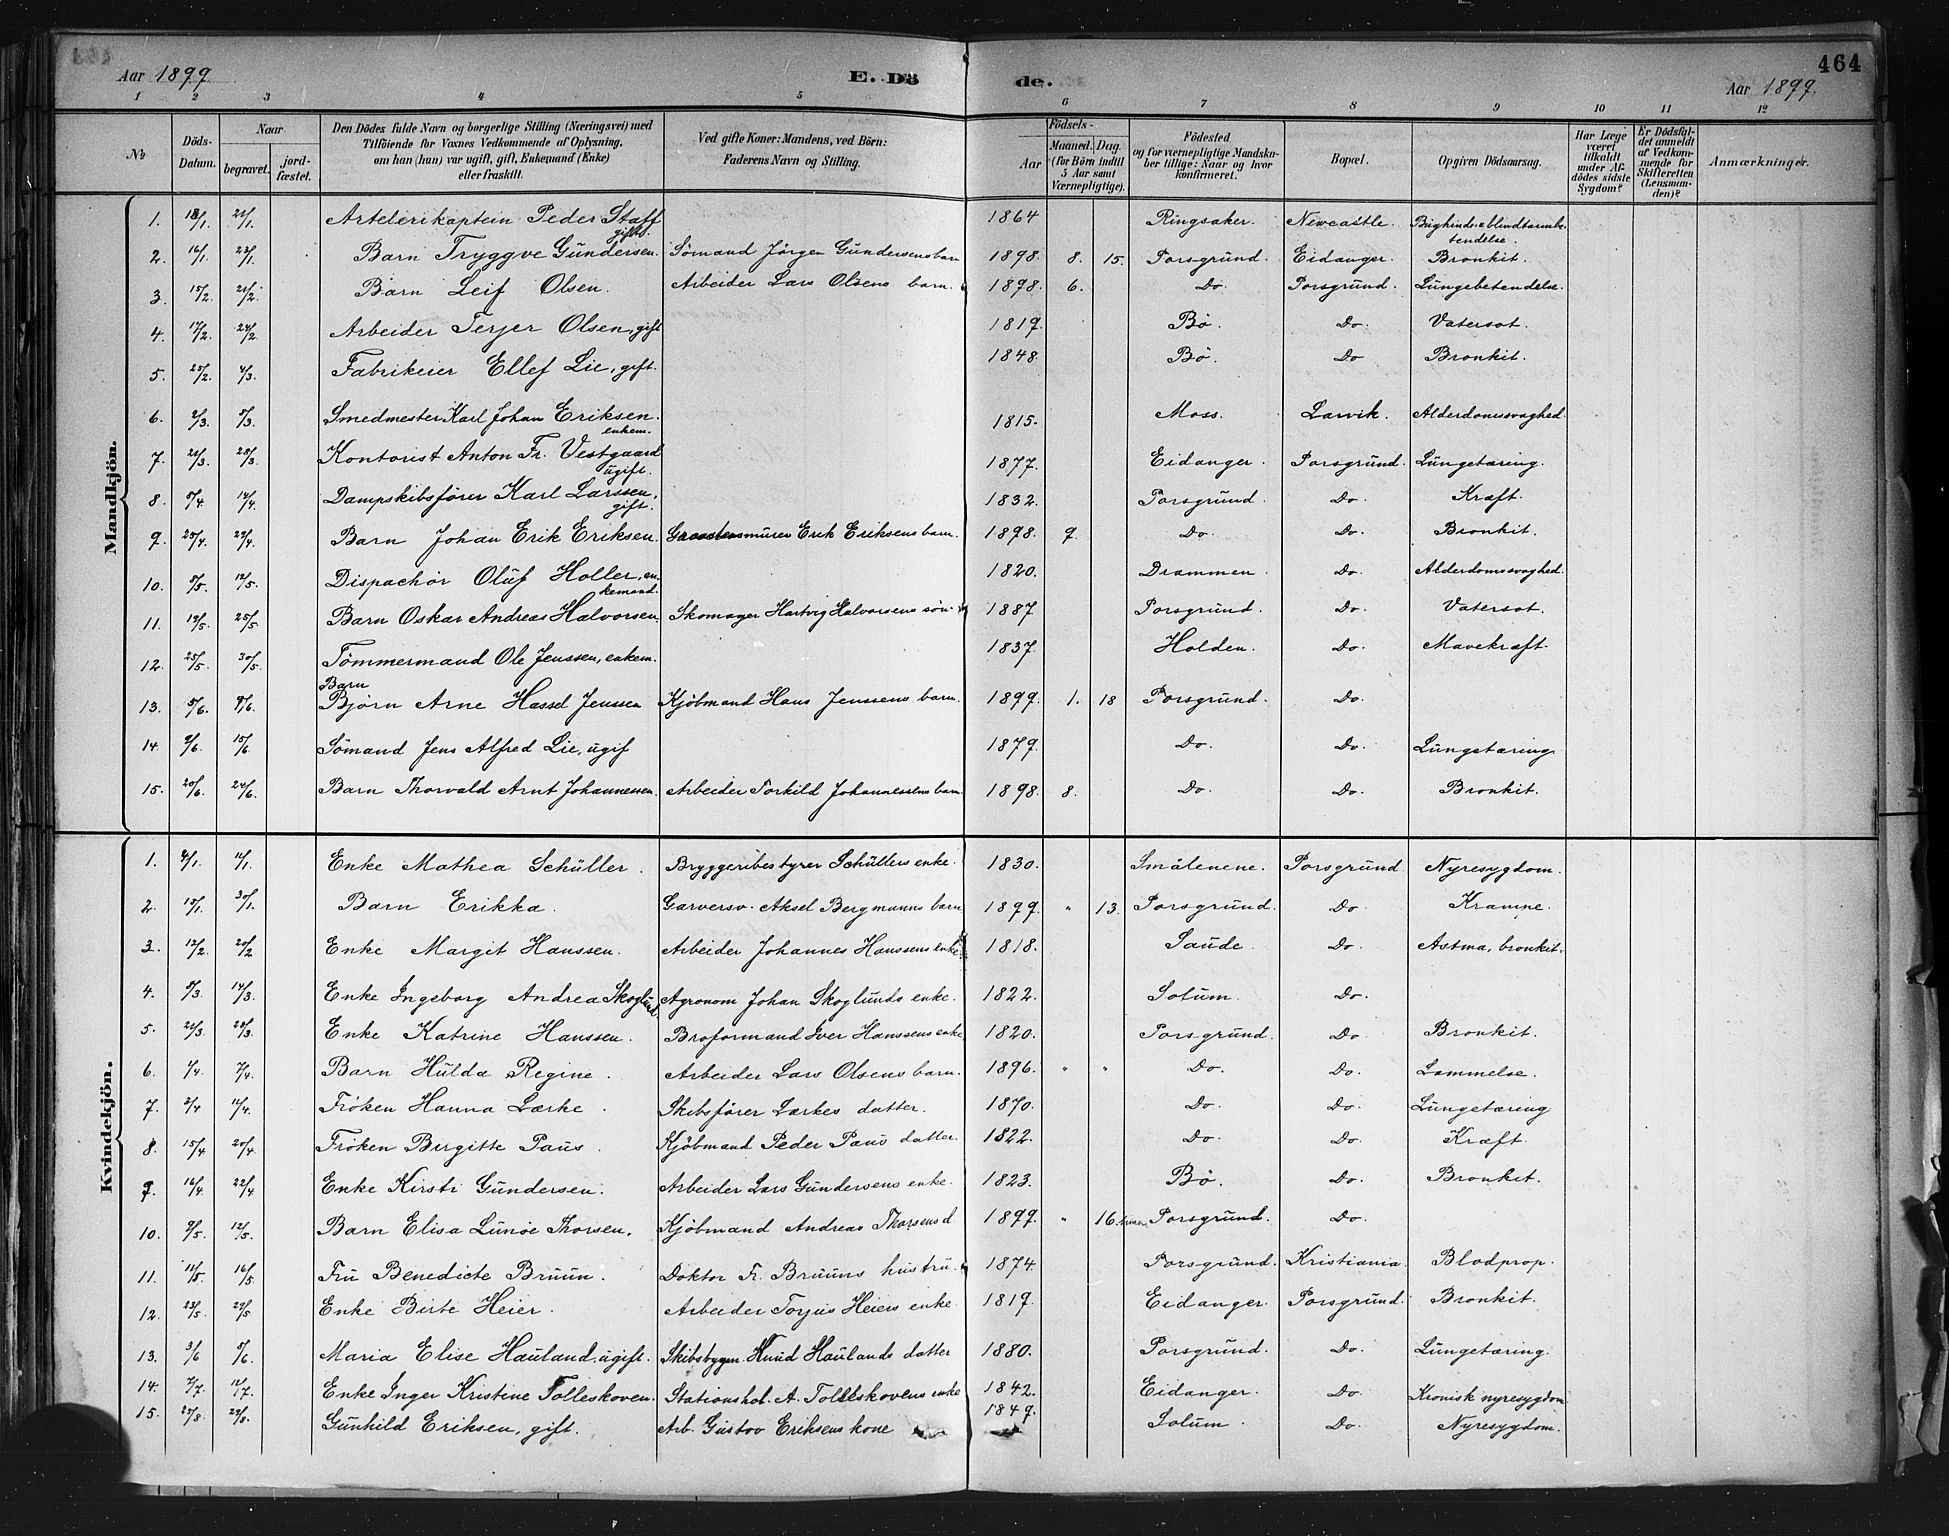 464
Aar 1899 E. Dö de. Aar 1899.
1 2 3 4 5 6 7 8 9 10 11 12
No Döds-Datum. Naar begravet. jord-fæstet. Den Dödes fulde Navn og borgerlige Stilling (Næringsvei) med Tilföiende for Voxnes Vedkommende af Oplysning, om han (hun) var ugift, gift, Enkemand (Enke) eller fraskilt. Ved gifte Koner: Mandens, ved Börn: Faderens Navn og Stilling. Födsels- Aar Maaned. Dag. (for Börn indtil 5 Aar samt Værnepligtige). Födested og for værnepligtige Mandska-ber tillige: Naar og hvor konfirmeret. Bopæl. Opgiven Dödsaarsag. Har Læge været tilkaldt under Af-dödes sidste Sygdom? Er Dödsfal-det anmeldt af Vedkom-mende for Skifteretten (Lensman-den)? Anmærkninger.
Mandkjön.
1. 18/1 21/1. Artelerikaptein Peder Staff gift. 1864 Ringsaker. Newcastle. Bughinde & blindtarmbe-tendelse.
2. 16/1. 23/1. Barn Tryggve Gundersen. Sömand Jörgen Gundersens barn 1898 8. 15. Porsgrund. Eidanger. Bronkit.
3. 15/2. 21/2. Barn Leif Olsen. Arbeider Lars Olsens barn. 1898. 6. Do. Porsgrund. Lungebetendelse.
4. 17/2. 24/2. Arbeider Terjer Olsen, gift 1819. Bö. Do. Vatersot.
5. 25/2. 4/3. Fabrikeier Ellef Lie, gift. 1848. Bö. Do Bronkit.
6. 2/3. 5/3. Smedmester Karl Johan Eriksen. enkem. 1815. Moss. Larvik. Alderdomssvaghed.
7. 21/3. 28/3. Kontorist Anton Fr. Vestgaard ugift. 1877. Eidanger. Porsgrund. Lungetæring.
8. 5/4. 14/4. Dampskibsförer Karl Larssen, gift. 1832. Porsgrund. Do. Kræft.
9. 25/4. 29/4. Barn Johan Erik Eriksen. Graastensmurer Erik Eriksens barn. 1898. 9. Do. Do. Bronkit.
10. 5/5. 12/5. Dispachör Oluf Holler, en-kemand. 1820. Drammen Do. Alderdomssvaghed.
11. 19/5. 25/5 Barn Oskar Andreas Halvorsen Skomager Hartvig Halvorsens sön. 1887 Porsgrund. Do. Vatersot.
12. 25/5. 30/5. Tömmermand Ole Jenssen, enkem. 1837. Holden. Do. Mavekræft.
13. 5/6. 9/6. Barn Björn Arne Hassel Jenssen Kjöbmand Hans Jenssens barn. 1899. 1. 18 Porsgrund. Do.
14. 9/6. 15/6 Sömand Jens Alfred Lie, ugif 1879. Do. Do. Lungetæring.
15. 20/6. 24/6. Barn Thorvald Arnt Johannessen. Arbeider Torkild Johannessens barn. 1898. 8. Do. Do. Bronkit.
Kvindekjön.
1. 4/1. 11/1. Enke Mathea Schüller. Bryggeribestyrer Schüllers enke. 1830. Smålenene. Porsgrund Nyresygdom.
2. 15/1. 30/1. Barn Erikka. Garversv. Aksel Bergmanns barn 1899. " 13. Porsgrund. Do. Krampe.
3. 12/2. 20/2 Enke Margit Hanssen. Arbeider Johannes Hanssens enke 1818. Saude. Do. Astma, bronkit.
4. 5/3. 14/3. Enke Ingeborg Andrea Skoglund. Agronom Johan Skoglunds enke. 1822. Solum. Do.
5. 21/3. 28/3. Enke Katrine Hanssen. Broformand Iver Hanssens enke 1820. Porsgrund. Do. Bronkit.
6. 1/4. 7/4. Barn Hulda Regine. Arbeider Lars Olsens barn. 1896. " " Do. Do. Lammelse.
7. 2/4 11/4. Fröken Hanna Lærke. Skibsförer Lærkes datter. 1870. Do. Do. Lungetæring
8. 15/4 20/4. Fröken Birgitte Paus. Kjöbmand Peder Paus datter. 1822. Do. Do. Kræft.
9. 16/4. 22/4 Enke Kirsti Gundersen. Arbeider Lars Gundersens enke. 1823. Bö. Do. Bronkit.
10. 9/5. 12/5. Barn Elisa Lunöe Thorsen. Kjöbmand Andreas Thorsens d 1899. " 16 timer. Porsgrund. Do.
11. 11/5. 16/5. Fru Benedicte Bruun. Doktor Fr. Bruuns hustru. 1874. Porsgrund. Kristiania. Blodprop.
12. 23/5. 29/5 Enke Birte Heier. Arbeider Torjus Heiers enke 1819. Eidanger. Porsgrund. Bronkit.
13. 3/6 5/6. Maria Elise Hauland, ugift. Skibsbygm. Knud Haulands datter 1880. Porsgrund. Do. Lungetæring.
14. 7/7. 12/7. Enke Inger Kristine Tolleskoven. Stationshol. A. Tolleskovens enke 1842. Eidanger. Do. Kronisk nyresygdom
15. 25/8. 29/8. Gunhild Eriksen, gift. Arb. Gustav Eriksens kone 1849. Solum. Do. Nyresygdom.